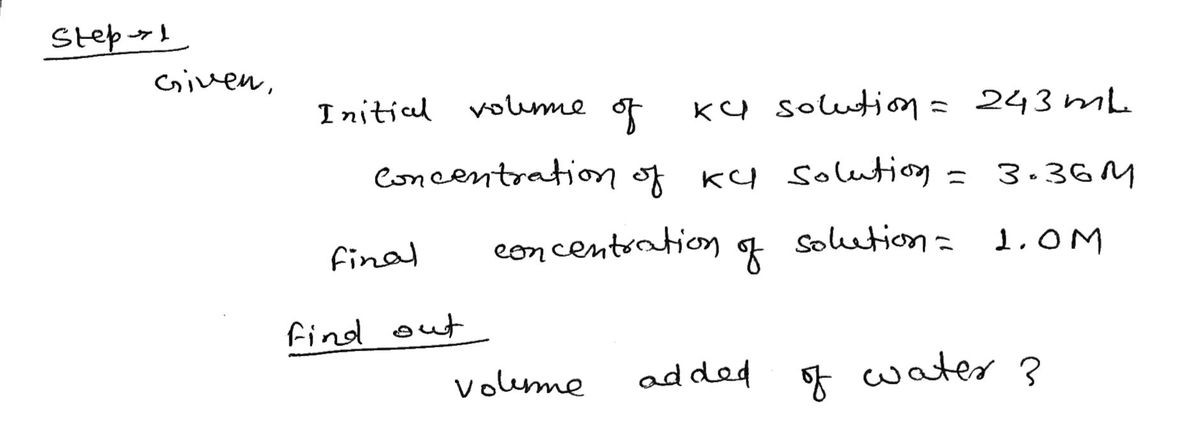 Step → 1
Given,
Initial volume of KCl solution = 243 mL
Concentration of KCl solution = 3.36 M
final concentration of solution = 1.0 M
find out
volume added of water ?